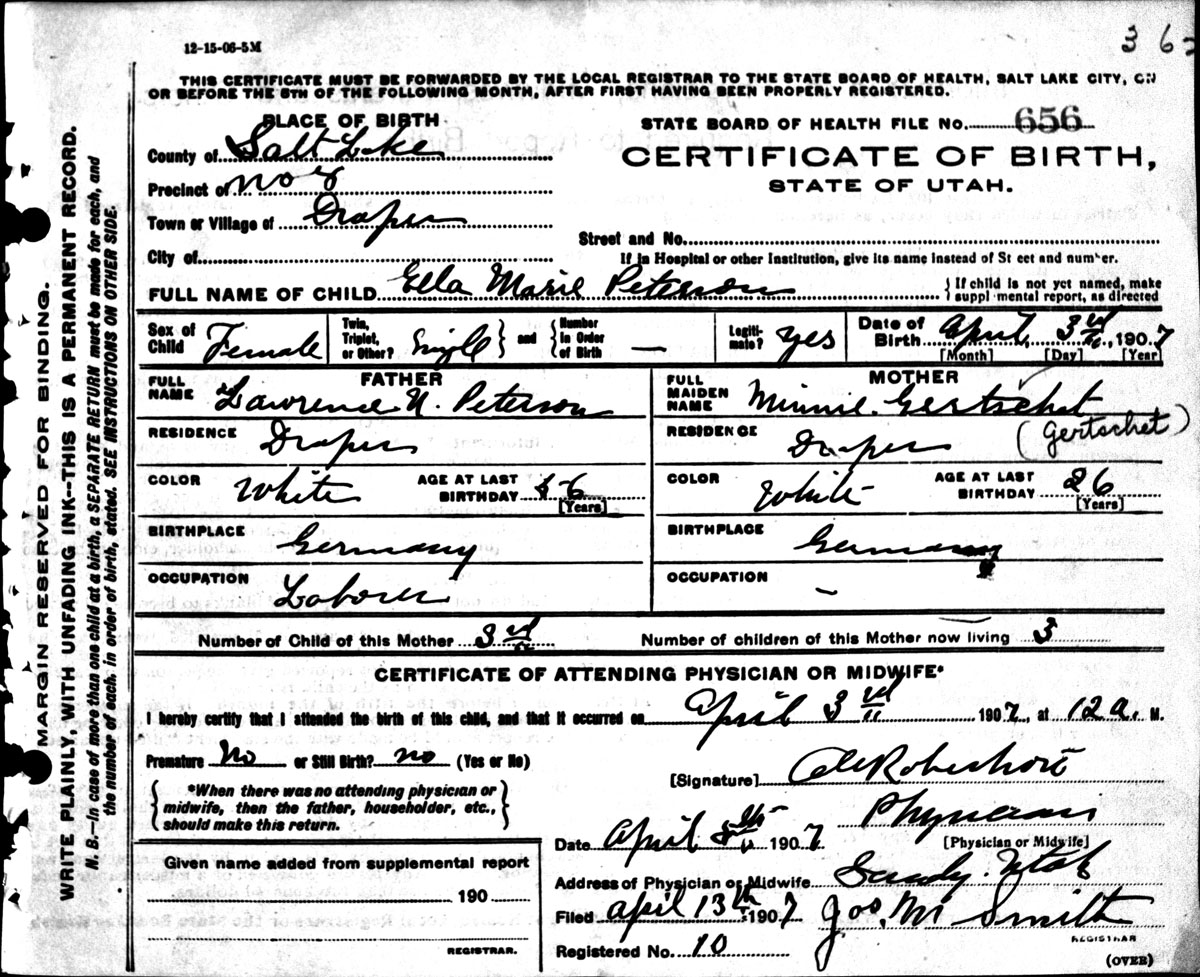 12-15-06-5M
3 6
THIS CERTIFICATE MUST BE FORWARDED BY THE LOCAL REGISTRAR TO THE STATE BOARD OF HEALTH, SALT LAKE CITY, ON
OR BEFORE THE 5TH OF THE FOLLOWING MONTH, AFTER FIRST HAVING BEEN PROPERLY REGISTERED.
PLACE OF BIRTH
STATE BOARD OF HEALTH FILE NO. 656
County of Salt Lake
CERTIFICATE OF BIRTH,
STATE OF UTAH.
Precinct of No
Town or Village of Draper
Street and No.
City of
If in Hospital or other Institution, give its name instead of St eet and number.
FULL NAME OF CHILD Ella Marie Peterson
{ If child is not yet named, make
suppl mental report, as directed
Sex of Child Female
Twin, Triplet, or Other? Single } and { Number in Order of Birth —
Legiti-mate? Yes
Date of Birth April 3rd, 1907
[Month] [Day] [Year]
FATHER
FULL NAME Lawrence N. Peterson
RESIDENCE Draper
COLOR White
AGE AT LAST BIRTHDAY 56
[Years]
BIRTHPLACE Germany
OCCUPATION Laborer
MOTHER
FULL MAIDEN NAME Minnie. Gertschet
(Gertschet)
RESIDENCE Draper
COLOR White
AGE AT LAST BIRTHDAY 26
[Years]
BIRTHPLACE Germany
OCCUPATION –
Number of Child of this Mother 3rd
Number of children of this Mother now living 3
CERTIFICATE OF ATTENDING PHYSICIAN OR MIDWIFE*
I hereby certify that I attended the birth of this child, and that it occurred on April 3rd 1907, at 12 a. M.
Premature No or Still Birth? no (Yes or No)
{ *When there was no attending physician or
midwife, then the father, householder, etc.,
should make this return. }
[Signature]
Physician
[Physician or Midwife]
Date April 8th 1907
Address of Physician or Midwife Sandy. Utah
Filed April 13th 1907 Jos. M. Smith
REGISTRAR
Registered No. 10
(OVER)
Given name added from supplemental report
190
REGISTRAR.
MARGIN RESERVED FOR BINDING.
WRITE PLAINLY, WITH UNFADING INK--THIS IS A PERMANENT RECORD.
N. B.—In case of more than one child at a birth, a SEPARATE RETURN must be made for each, and
the number of each, in order of birth, stated. SEE INSTRUCTIONS ON OTHER SIDE.